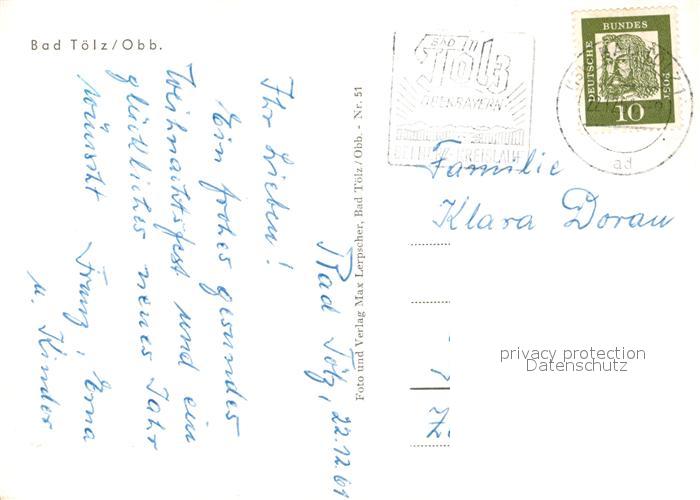 Bad Tölz/Obb.
Bad Tölz, 22.12.61
Ihr Lieben!
Ein frohes gesundes
Weihnachtsfest und ein
glückliches neues Jahr
wünscht Franz, Erna
u. Kinder.
Foto und Verlag Max Lerpscher, Bad Tölz/Obb. - Nr. 51
BAD
Tölz
OBERBAYERN
DEUTSCHE
BUNDES
POST
10
Familie
Klara Dorau
Z.
privacy protection
Datenschutz